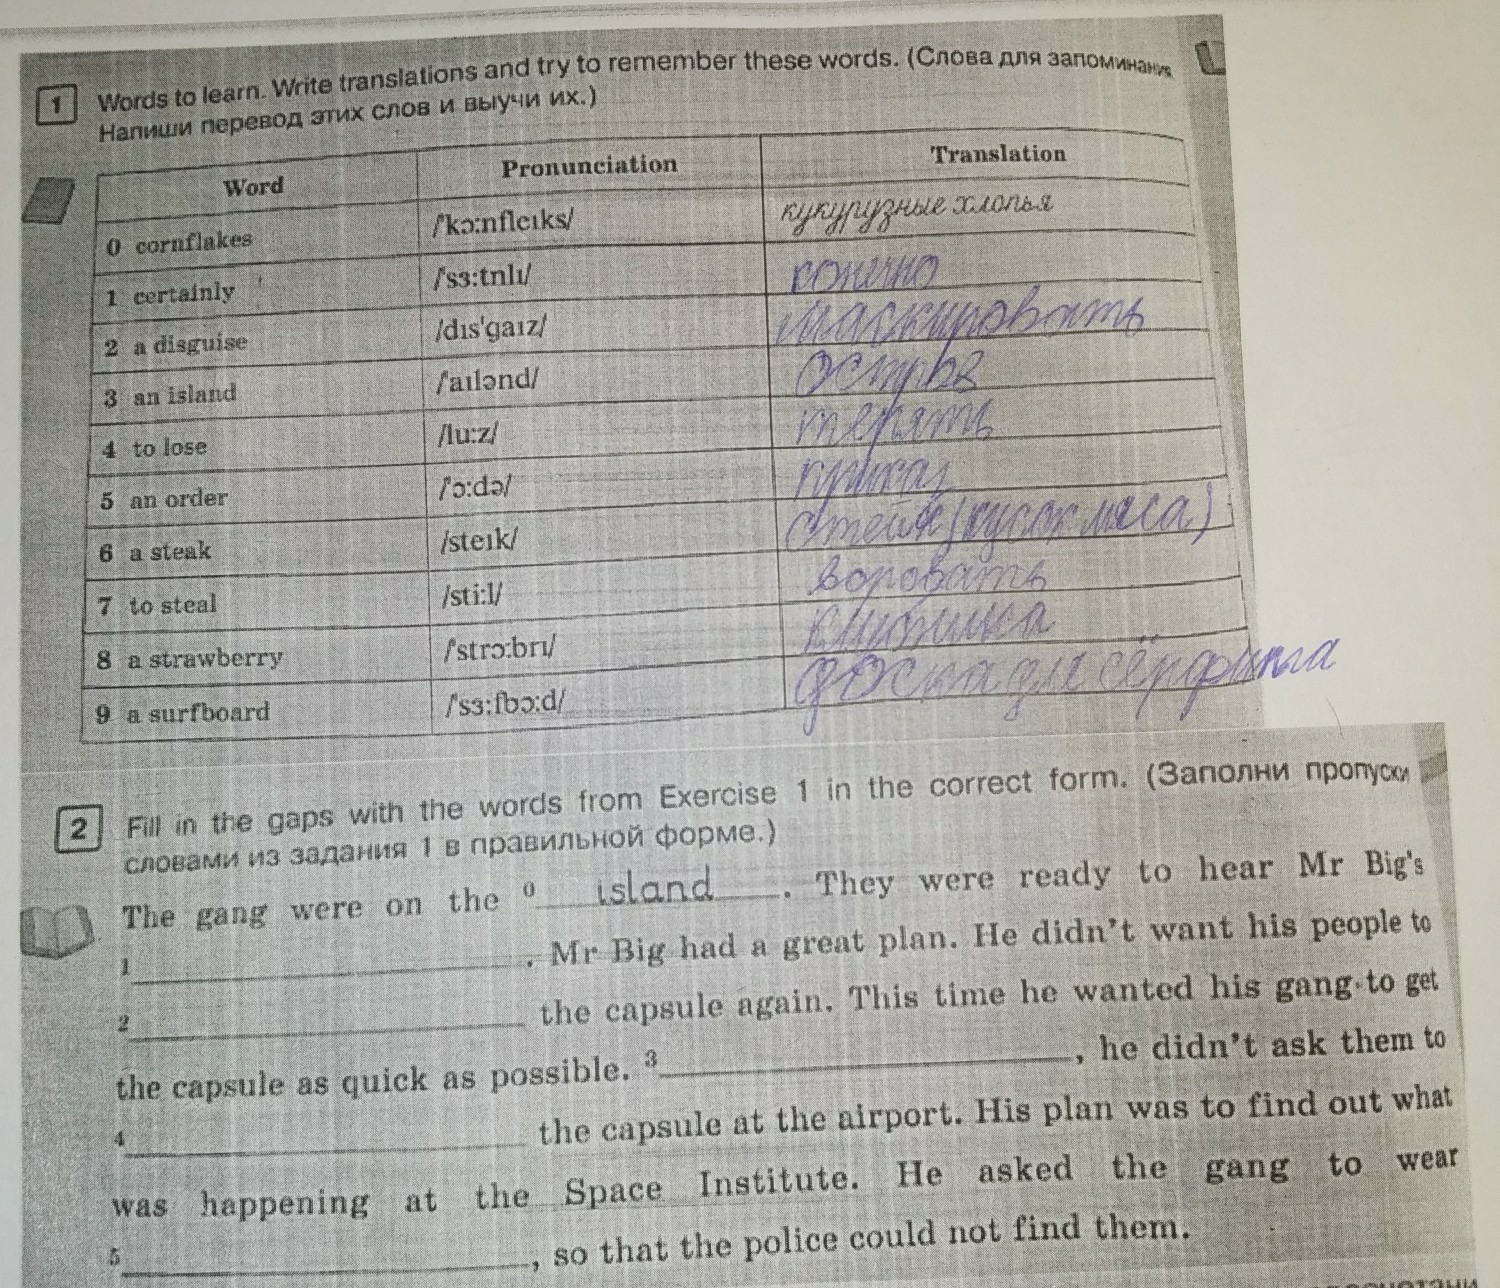 1 Words to learn. Write translations and try to remember these words. (Слова для запоминания
Напиши перевод этих слов и выучи их.)
Word Pronunciation Translation
0 cornflakes /'kɔ:nfleɪks/ кукурузные хлопья
1 certainly /'sɜ:tnlɪ/ конечно
2 a disguise /dɪs'gaɪz/ маскировать
3 an island /'aɪlənd/
4 to lose /lu:z/ терять
5 an order /'ɔ:də/ приказ
6 a steak /steɪk/ стейк (кусок мяса)
7 to steal /sti:l/ воровать
8 a strawberry /'strɔ:brɪ/
9 a surfboard /'sɜ:fbɔ:d/ доска для сёрфинга
2 Fill in the gaps with the words from Exercise 1 in the correct form. (Заполни пропуски
словами из задания 1 в правильной форме.)
The gang were on the 0 island. They were ready to hear Mr Big's
1 ____. Mr Big had a great plan. He didn't want his people to
2 ____ the capsule again. This time he wanted his gang to get
the capsule as quick as possible. 3 ____, he didn't ask them to
4 ____ the capsule at the airport. His plan was to find out what
was happening at the Space Institute. He asked the gang to wear
5 ____, so that the police could not find them.